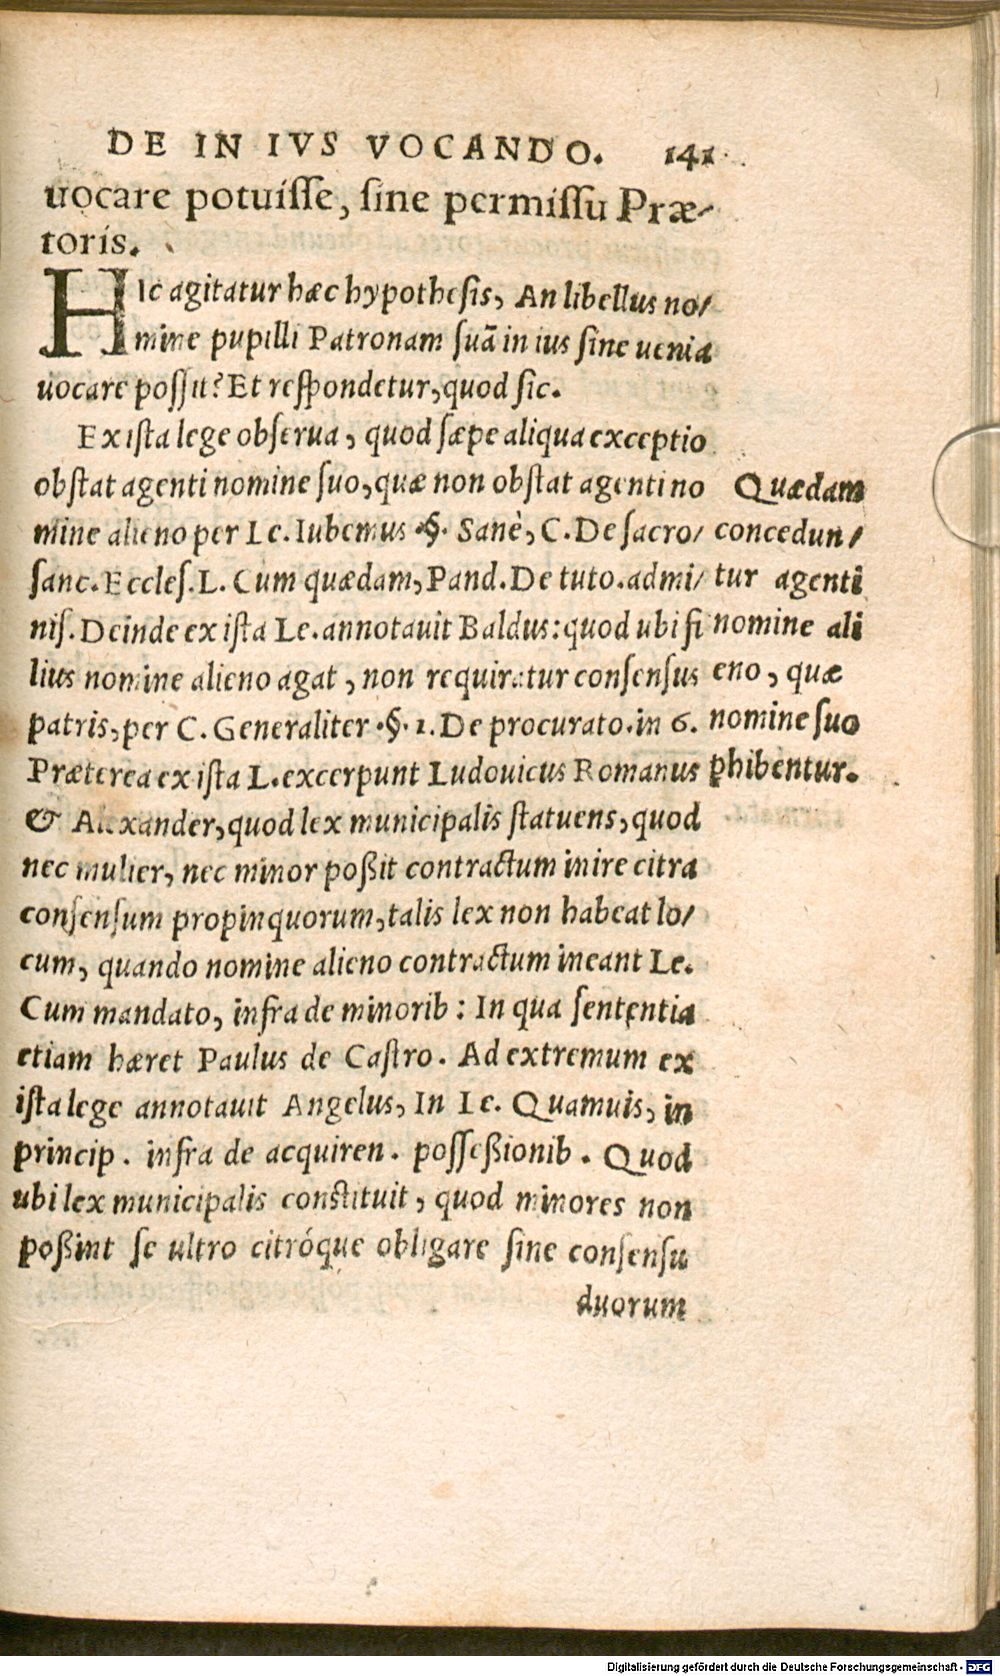 DE IN IVS VOCANDO. 141
uocare potuisse, sine permissu Præ-
toris.
HIc agitatur hæc hypothesis, An libellus no/
mine pupilli Patronam suã in ius sine uenia
uocare possit? Et respondetur, quod sic.
Ex ista lege obserua, quod sæpe aliqua exceptio
obstat agenti nomine suo, quæ non obstat agenti no
mine alieno per Le. Iubemus .§. Sanè, C. De sacro/
sanc. Eccles. L. Cum quædam, Pand. De tuto. admi/
nis. Deinde ex ista Le. annotauit Baldus: quod ubi fi
lius nomine alieno agat, non requiratur consensus
patris, per C. Generaliter .§. 1. De procurato. in 6.
Præterea ex ista L. excerpunt Ludouicus Romanus
& Alexander, quod lex municipalis statuens, quod
nec mulier, nec minor poßit contractum inire citra
consensum propinquorum, talis lex non habeat lo/
cum, quando nomine alieno contractum ineant Le.
Cum mandato, infra de minorib: In qua sententia
etiam hæret Paulus de Castro. Ad extremum ex
ista lege annotauit Angelus, In Le. Quamuis, in
princip. infra de acquiren. posseßionib. Quod
ubi lex municipalis constituit, quod minores non
poßint se ultro citróque obligare sine consensu
duorum
Quædam
concedun/
tur agenti
nomine ali
eno, quæ
nomine suo
ꝓhibentur.
Digitalisierung gefördert durch die Deutsche Forschungsgemeinschaft - DFG